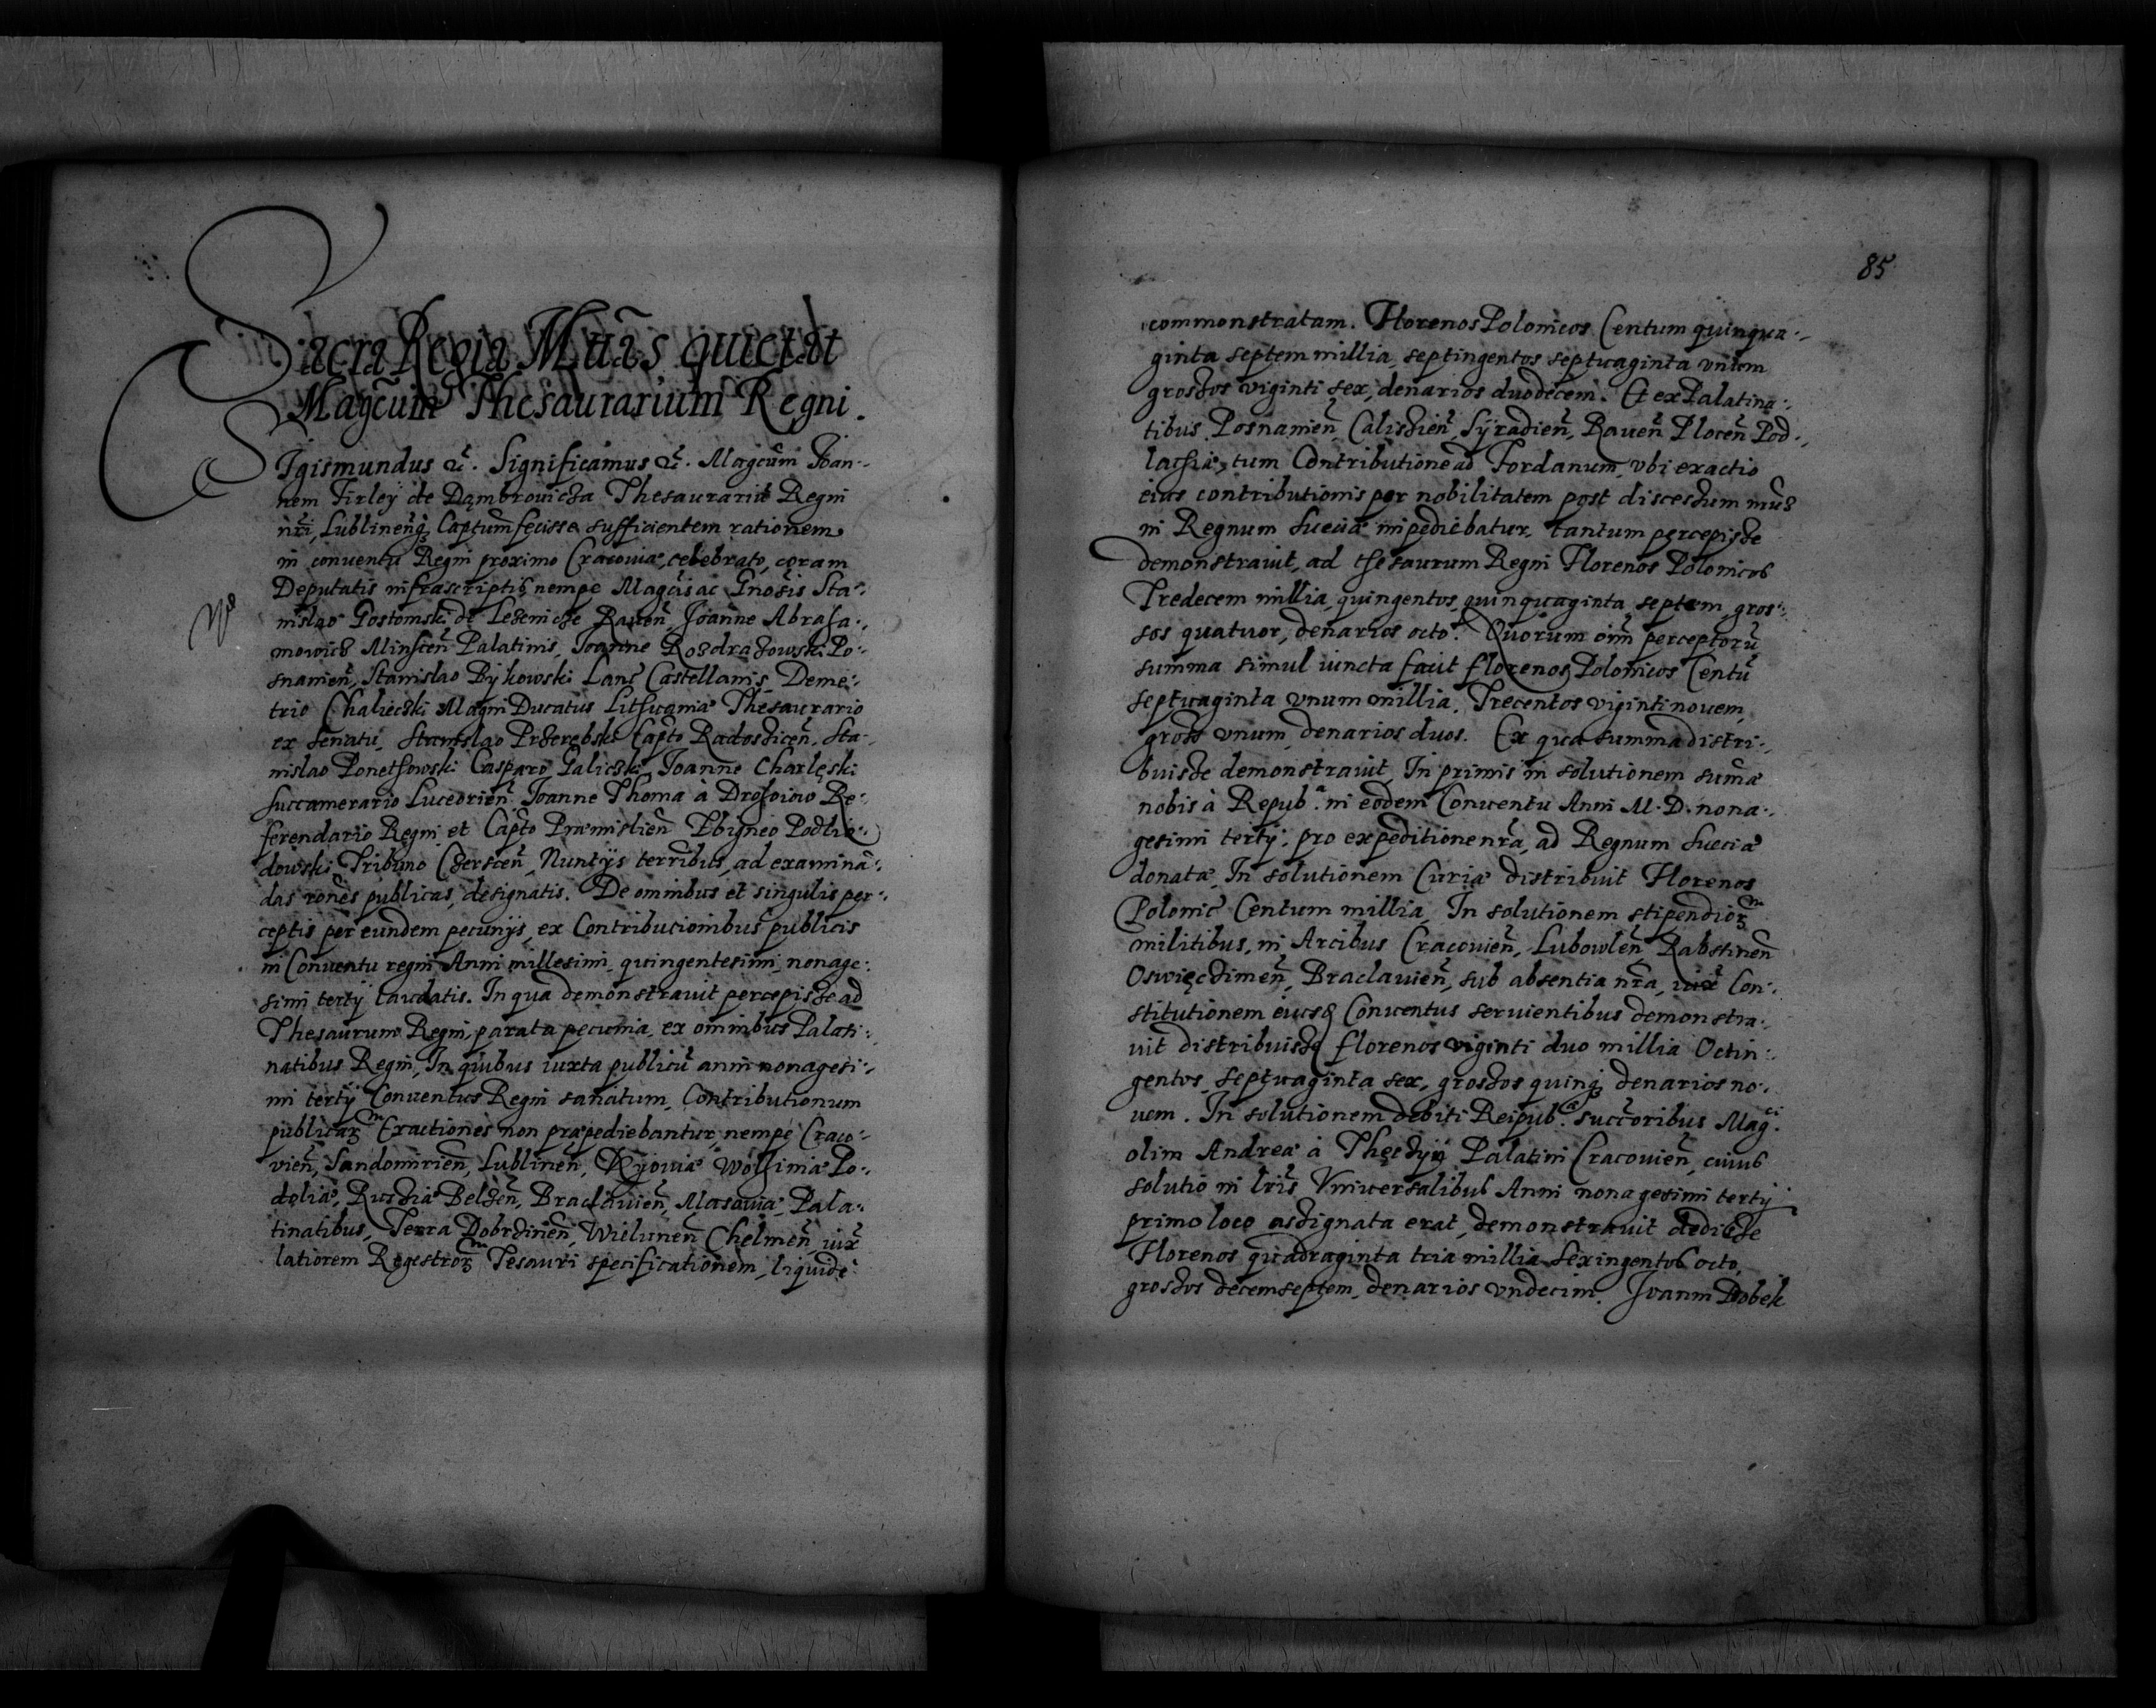 Sacra Regia Mttãs quietat
Magcũm Thesaurarium Regni.
SIgismundus &c̃. Significamus &c̃. Magcũm Joan-
nem Firleÿ de Dąmbrouicza Thesaurariũ Regni
nr̃i, Lublinenq̃ Captum fecisse sufficientem rationem
in conuentu Regni proximo Cracouiæ celebrato, coram
Deputatis infrascriptis nempe Magcis ac Gnosis Sta-
nislao Gostomski de Lezenicze Rauen̄, Joanne Abraha-
mowicz Minscen̄ Palatinis, Joanne Rozdrazowski Po-
snanien̄, Stanislao Bÿkowski Lanc̃ Castellanis, Deme-
trio Chaleczki Magni Ducatus Lithuaniæ Thesaurario
ex senatu, Stanislao Przerębski Capto Radoszicen̄, Sta-
nislao Ponethowski Casparo Galiczki, Joanne Charlęski
succamerario Luceorien̄, Joanne Thoma à Drohoiow Re-
ferendario Regni et Capto Præmislien̄ Sbigneo Podlio-
dowski Tribuno Czerscen̄, Nuntÿs terribus, ad examinã-
das rones publicas, designatis. De omnibus et singulis per-
ceptis per eundem pecunÿs, ex Contribucionibus publicis
in Conuentu regni Anni millesimi, quingentesimi, nonage-
simi tertÿ laudatis. In qua demonstrauit percepisse ad
Thesaurum Regni, parata pecunia, ex omnibus Palati-
natibus Regni, In quibus iuxta publicũ anni nonagesi-
mi tertÿ Conuentus Regni sanatum, Contributionum
publicarꝫ Exactiones non præpediebantur, nempe Craco-
vien̄, Sandomirien̄, Lublinen̄, Kÿouiæ Wolhiniæ Po-
doliæ, Russiæ Belzen̄, Braclauien̄, Masouiæ, Pala-
tinatibus, Terra Dobrzinen̄, Wielunen̄ Chelmen̄, iux̃
latiorem Regestrorꝫ Tesauri specificationem, liquide
85
commonstratam. Florenos Polonicos Centum quinqua-
ginta septem millia, septingentos septuaginta vnum
grossos viginti sex, denarios duodecem. Et ex Palatina-
tibus Posnanien̄, Calissien̄, Sÿradien̄, Rauen̄ Plocen̄ Pod-
lachiæ, tum Contributione ad Fordanum, vbi exactio
eius contributionis per nobilitatem post discessum nr̃ũ
in Regnum Sueciæ impediebatur, tantum percepisse
demonstrauit, ad thesaurum Regni Florenos Polonicos
Tredecem millia, quingentos, quinquaginta septem, gros-
sos quatuor, denarios octo. Quorum oim̃ perceptorũ
summa simul iuncta facit florenos Polonicos Centũ
septuaginta vnum millia, Trecentos viginti nouem,
grosso vnum, denarios duos. Ex qua summa distri-
buisse demonstrauit, In primis in solutionem sum̃æ
nobis à Repub.ᵃ in eodem Conuentu Anni M.D. nona-
gesimi tertÿ, pro expeditione nr̃a, ad Regnum Sueciæ
donatæ, In solutionem Curiæ distribuit Florenos
Polonic̃ Centum millia, In solutionem stipendiorꝫ
militibus, in Arcibus Cracouien̄, Lubowlen̄, Rabstinen̄
Oswięcimen̄, Braclauien̄, sub absentia nr̃a, iux̃ Con-
stitutionem eiusd̃ Conuentus seruientibus demonstra-
uit distribuisse florenos viginti duo millia Octin-
gentos, septuaginta sex, grossos quinq̃ denarios no-
uem. In solutionem debiti Reipub.æ succoribus Mag.ci
olim Andreæ à Thęczÿn Palatini Cracouien̄, cuius
solutio in lr̃is Vniuersalibus Anni nonagesimi tertÿ
primo loco assignata erat, demonstrauit dedisse
Florenos quadraginta tria millia sexingentos octo,
grossos decemseptem, denarios vndecim. Joanni Dobek